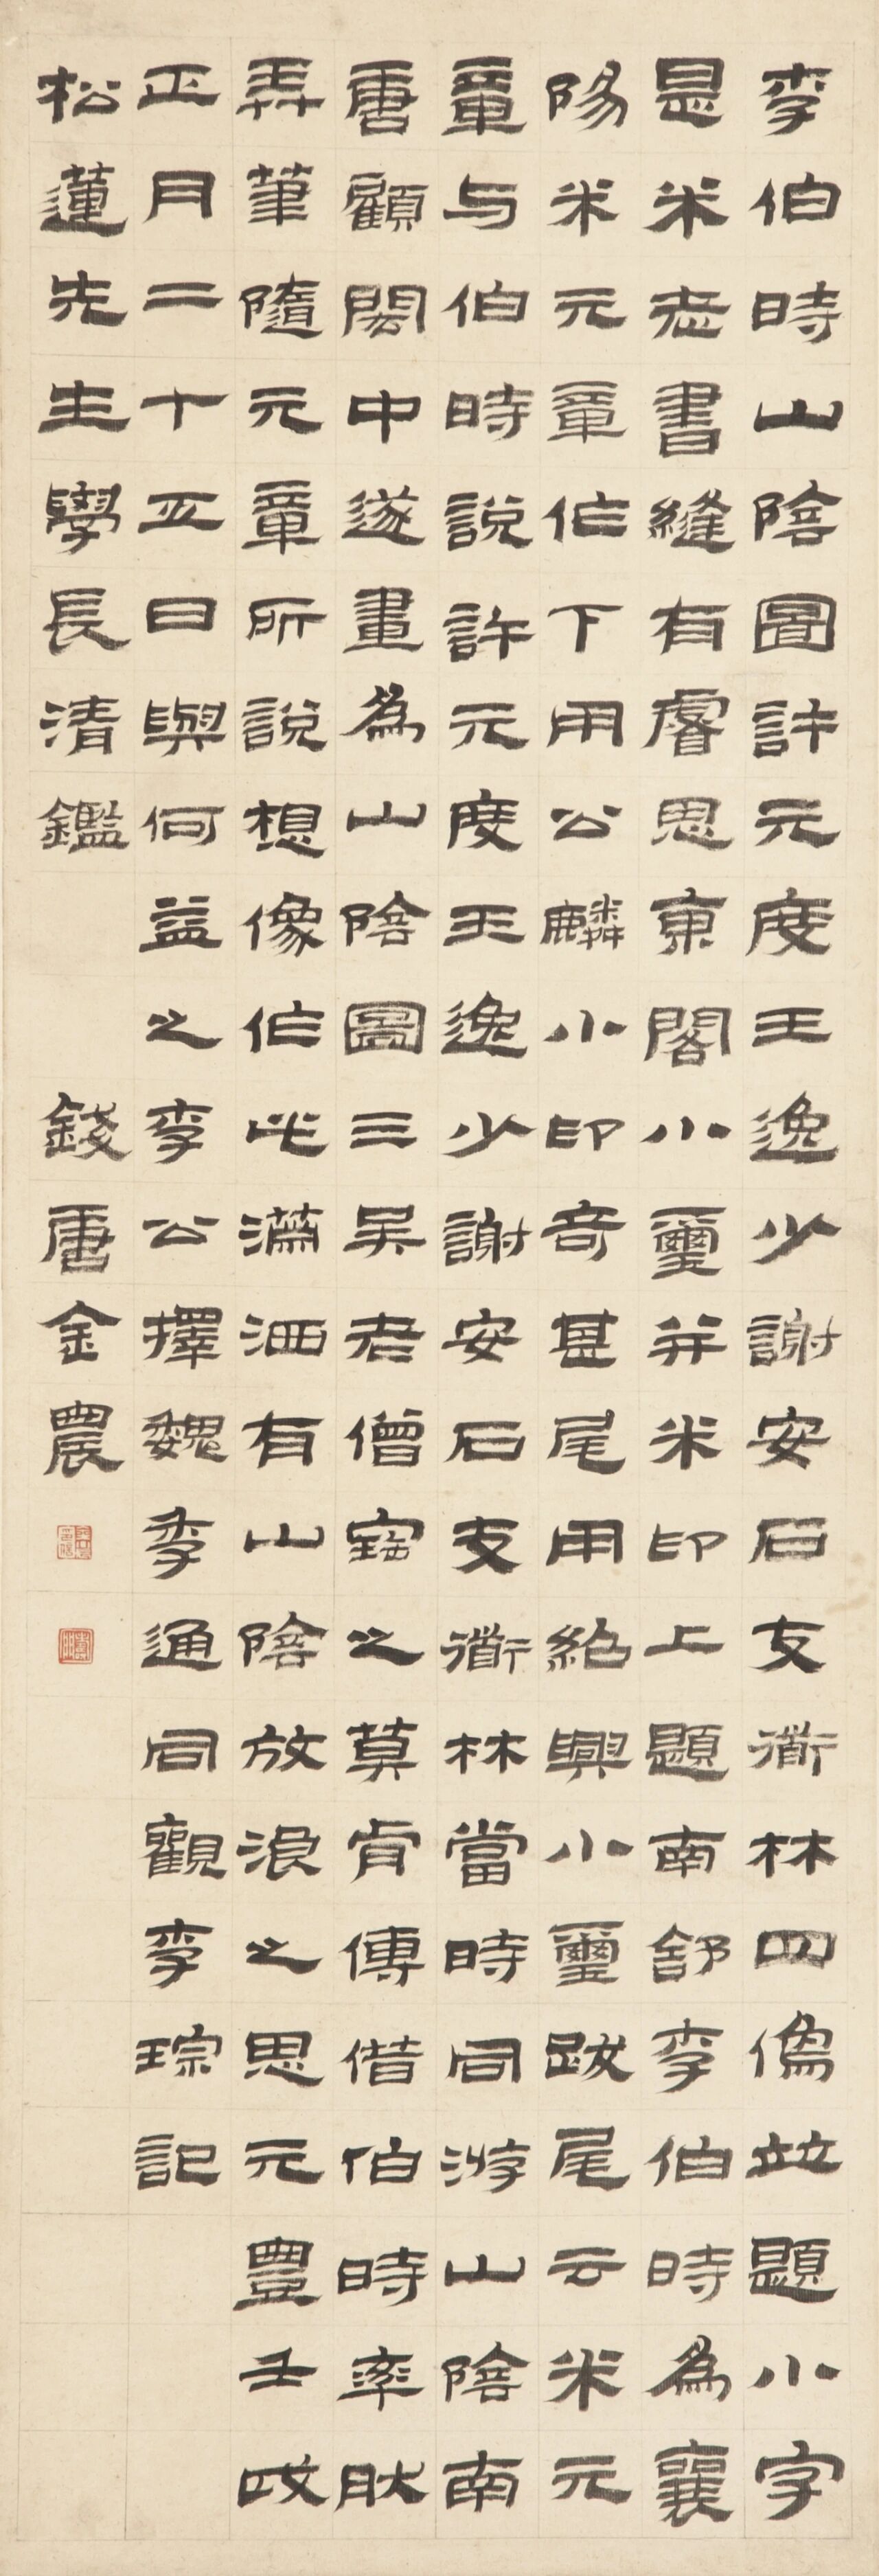 李伯時山陰圖許元度王逸少謝安石支衜林四像竝題小字
是米老書縫有睿思東閣小璽并米印上題南舒李伯時為襄
陽米元章作下用公麟小印奇甚尾用紹興小璽跋尾云米元
章与伯時說許元度王逸少謝安石支衜林當時同游山陰南
唐顧閎中遂畫為山陰圖三吳老僧寶之莫肯傳借伯時率肰
弄筆隨元章所說想像作此瀟洒有山陰放浪之思元豐壬戌
正月二十五日與何益之李公擇魏季通同觀李琮記
松蓮先生學長清鑑 錢唐金農